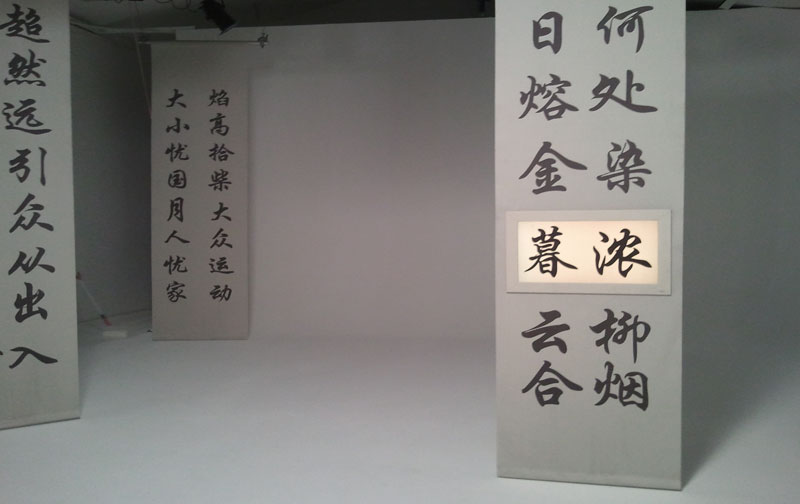 超然远引众从出入
大小忧国月人忧家
焰高拾柴大众运动
日熔金暮云合
何处染浓柳烟